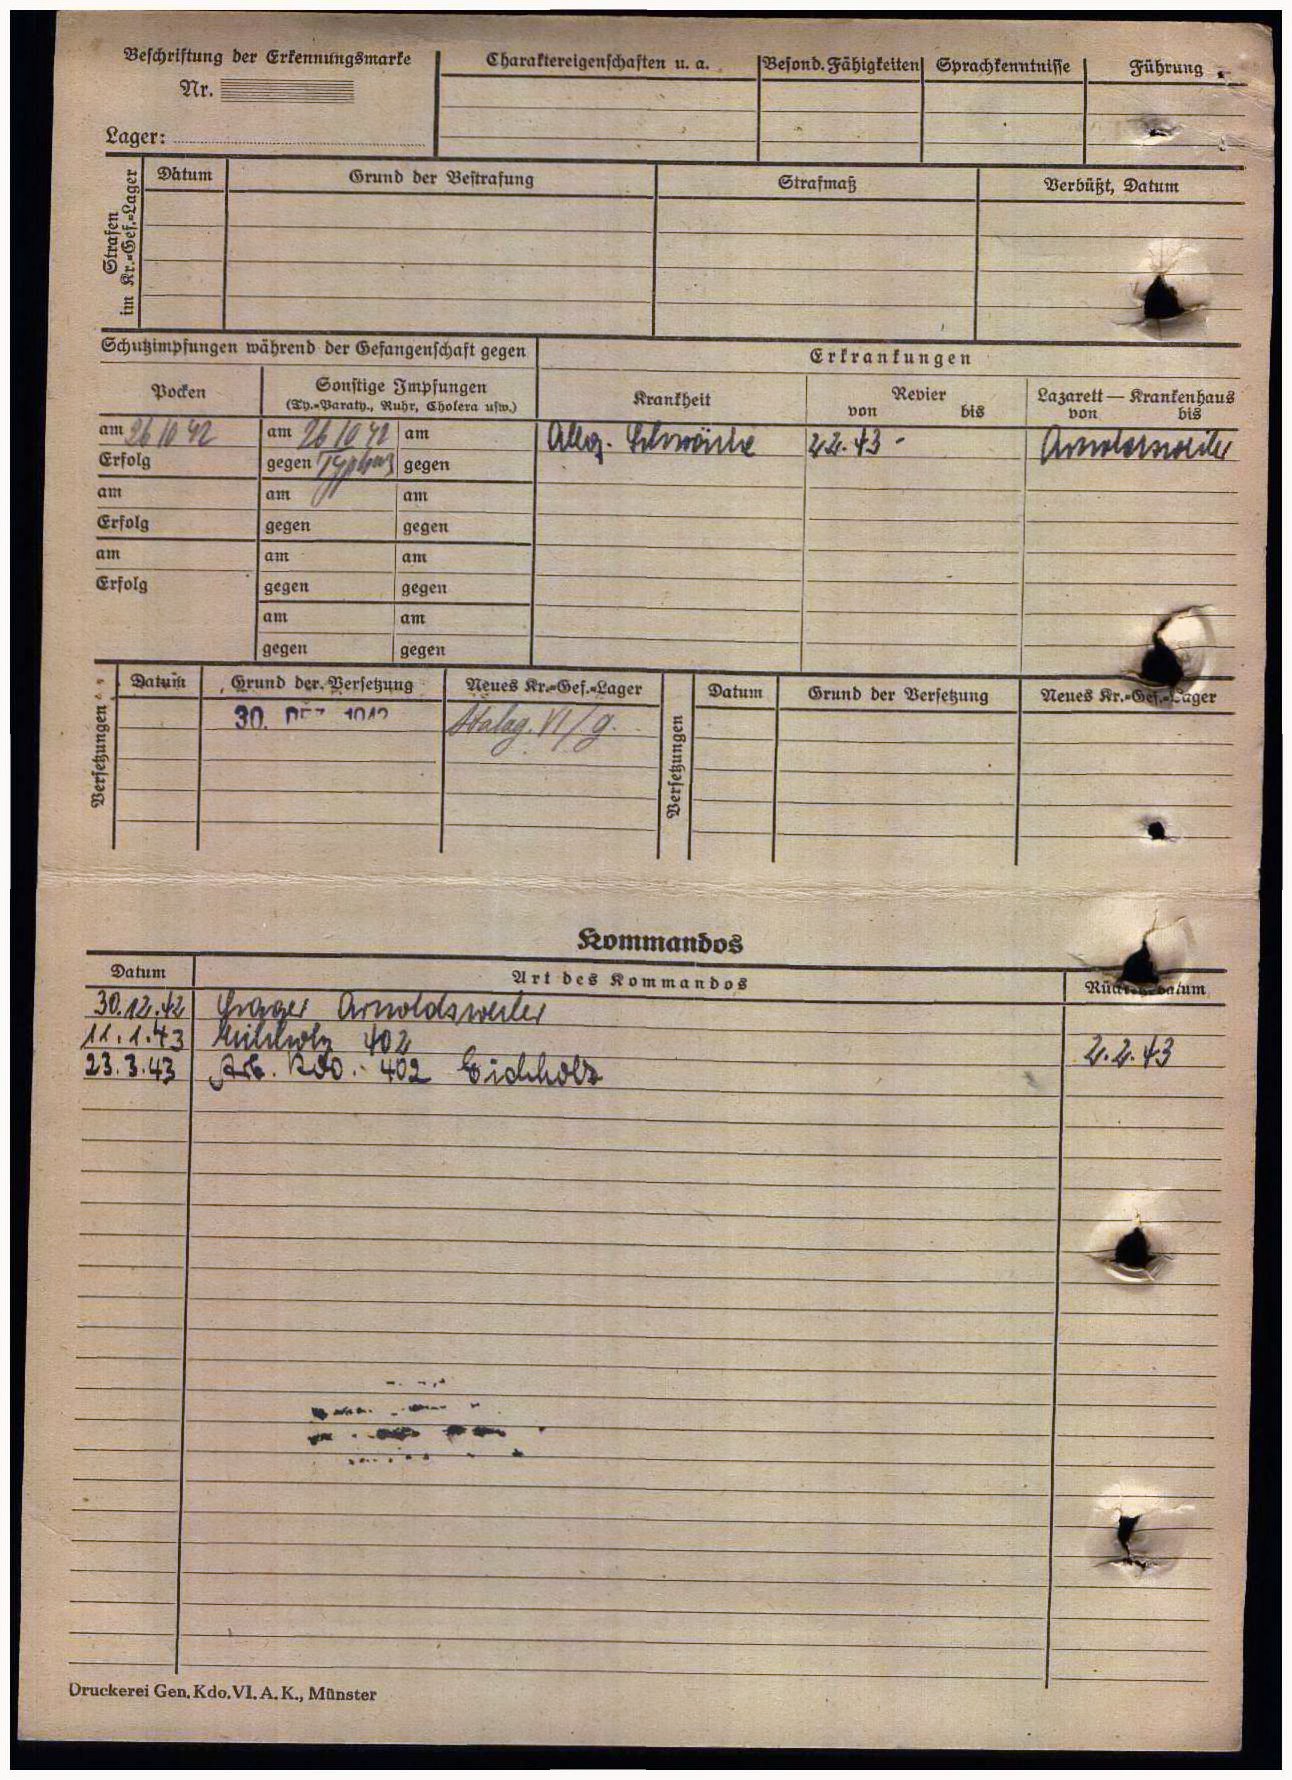 Beschriftung der Erkennungsmarke
Nr.
Lager:
Charaktereigenschaften u. a.
Besond. Fähigkeiten
Sprachkenntnisse
Führung
Strafen
im Kr.=Gef.=Lager
Datum
Grund der Bestrafung
Strafmaß
Verbüßt, Datum
Schutzimpfungen während der Gefangenschaft gegen
Erkrankungen
Pocken
Sonstige Impfungen
(Ty.=Paraty., Ruhr, Cholera usw.)
Krankheit
Revier
von bis
Lazarett — Krankenhaus
von bis
am 26 10 42 am 26 10 42 am
Allg. Schwäche 2.2.43 - Arnoldsweiler
Erfolg gegen Typhus gegen
am am am
Erfolg gegen gegen
am am am
Erfolg gegen gegen
am am
gegen gegen
Versetzungen
Datum Grund der Versetzung Neues Kr.=Gef.=Lager
30. DEZ. 1942 Stalag. VI/g.
Versetzungen
Datum Grund der Versetzung Neues Kr.=Gef.=Lager
Kommandos
Datum Art des Kommandos
30.12.42 Arnoldsweiler
11.1.43 Eichholz 402 2.2.43
23.3.43 Arb. Kdo. 402 Eichholz
Druckerei Gen. Kdo. VI. A. K., Münster